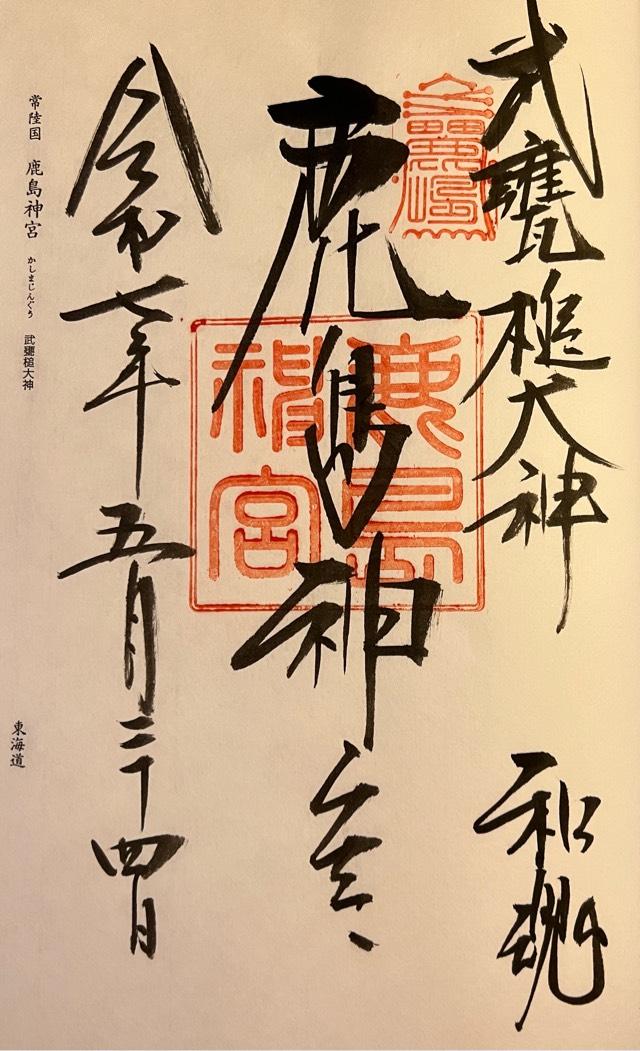 武甕槌大神 和魂
鹿島神宮
鹿島神宮
令和七年五月二十四日
常陸国 鹿島神宮 かしまじんぐう 武甕槌大神
東海道